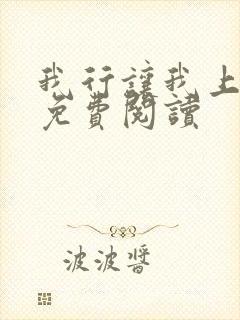 我行讓我上
免費閱讀
波波醬